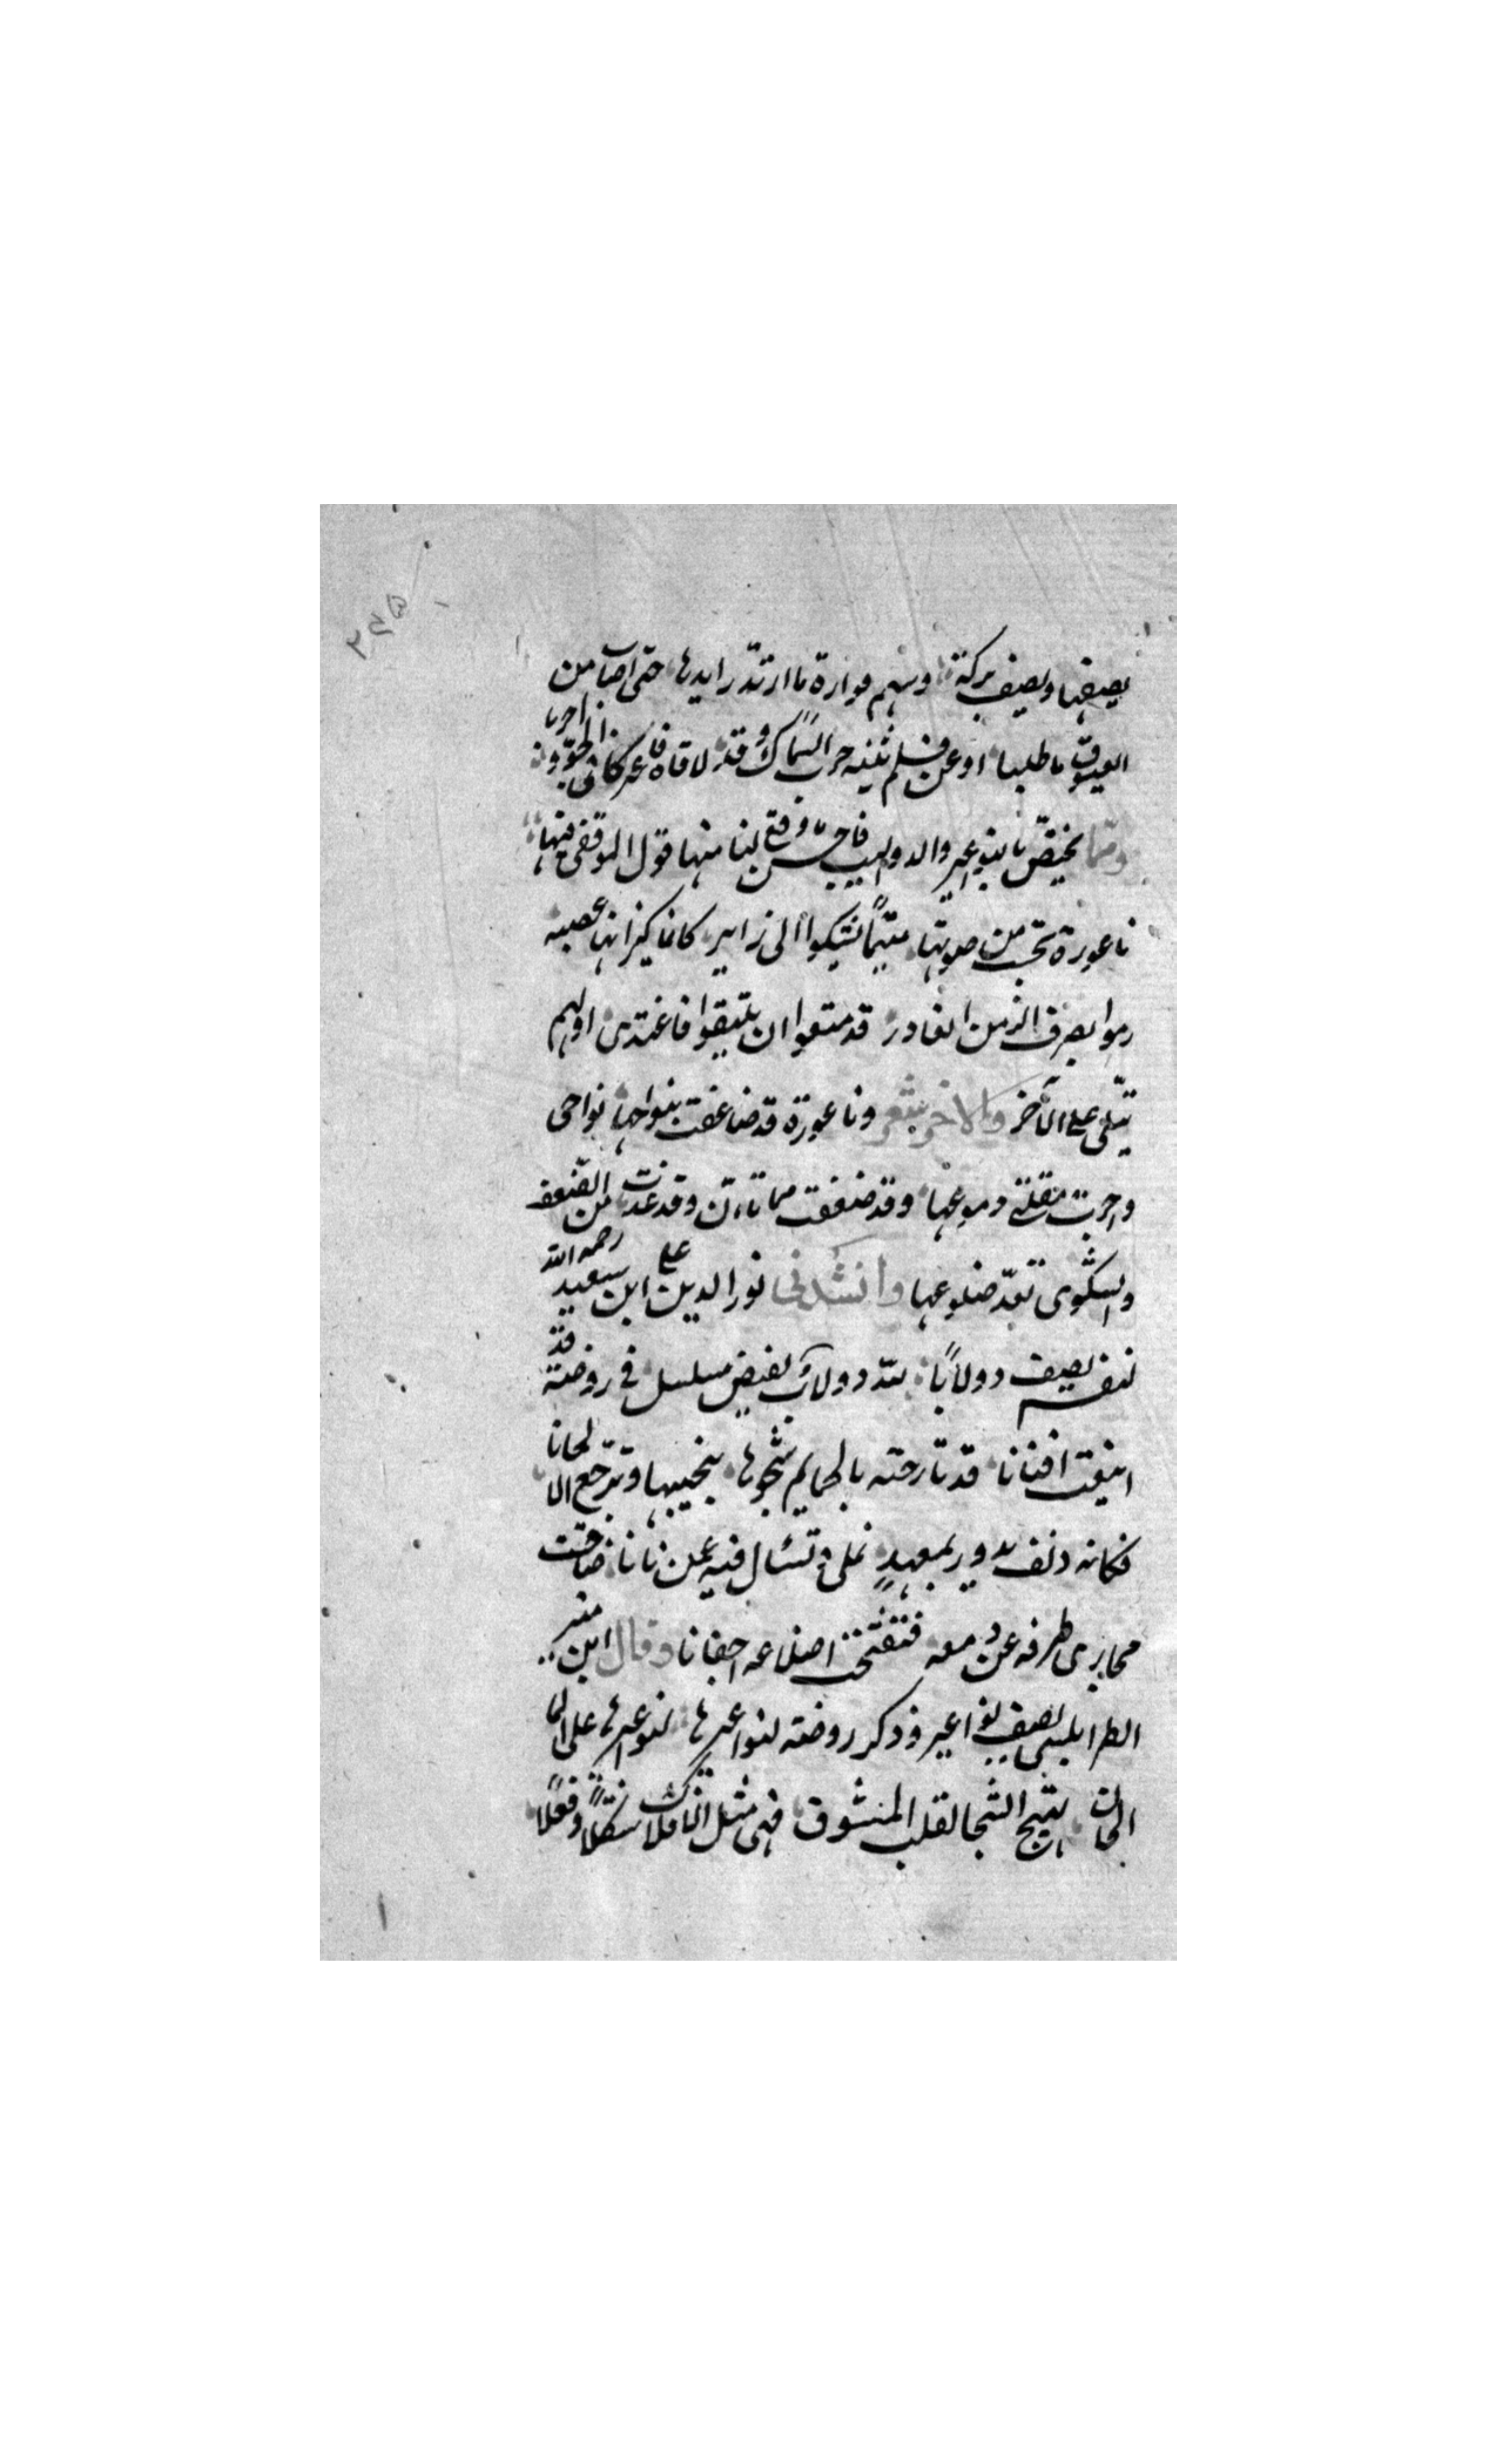 يصيفها ويصيف بركة وسهم فوارة ما ارتد رايدها حتى اصاب من
العيوق ما طلبا اوعن فلم تثنيه حرب السماك وقد لاقاه فاعركا في الجو واحربا
ومما يختص بالنواعير والدواليب فاحسن ما وقع لنا منها قول الموفقي فيها
ناعورة تحسب من صوتها متيما تشكوا الى زاير كانما كيزانها عصبه
رموا بصرف الزمن الغادر قد منعوا ان يلتقوا فاغتدى اولهم
يبكي على الآخر والاخر يشعر وناعورة قد ضاعفت بنواحها نواحي
واجرت مقلتي دموعها وقد ضعفت مما تان وقد غدت من الضعف
والشكوى تعد ضلوعها وانشدني نور الدين علي ابن سعيد رحمه الله
لنفسه يصيف دولابا لله دولاب يفيض مسلسل في روضة قد
اينعت افنانا قد تارحته بالحمايم شجوها بنحيبها وترجع الالحانا
فكانه دنف يدور بمعهد نملي وتسئال فيه عمن نانا ضاقت
مجارى طرفه عن دمعه فتفتحت اضلاعه اجفانا وقال ابن منير
الطرابلسي يصيف نواعير وذكر روضته لنواعيرها على الما
الحان يهيج الشجا لقلب المشوق فهي مثل الافلاك شكلا وفعلا